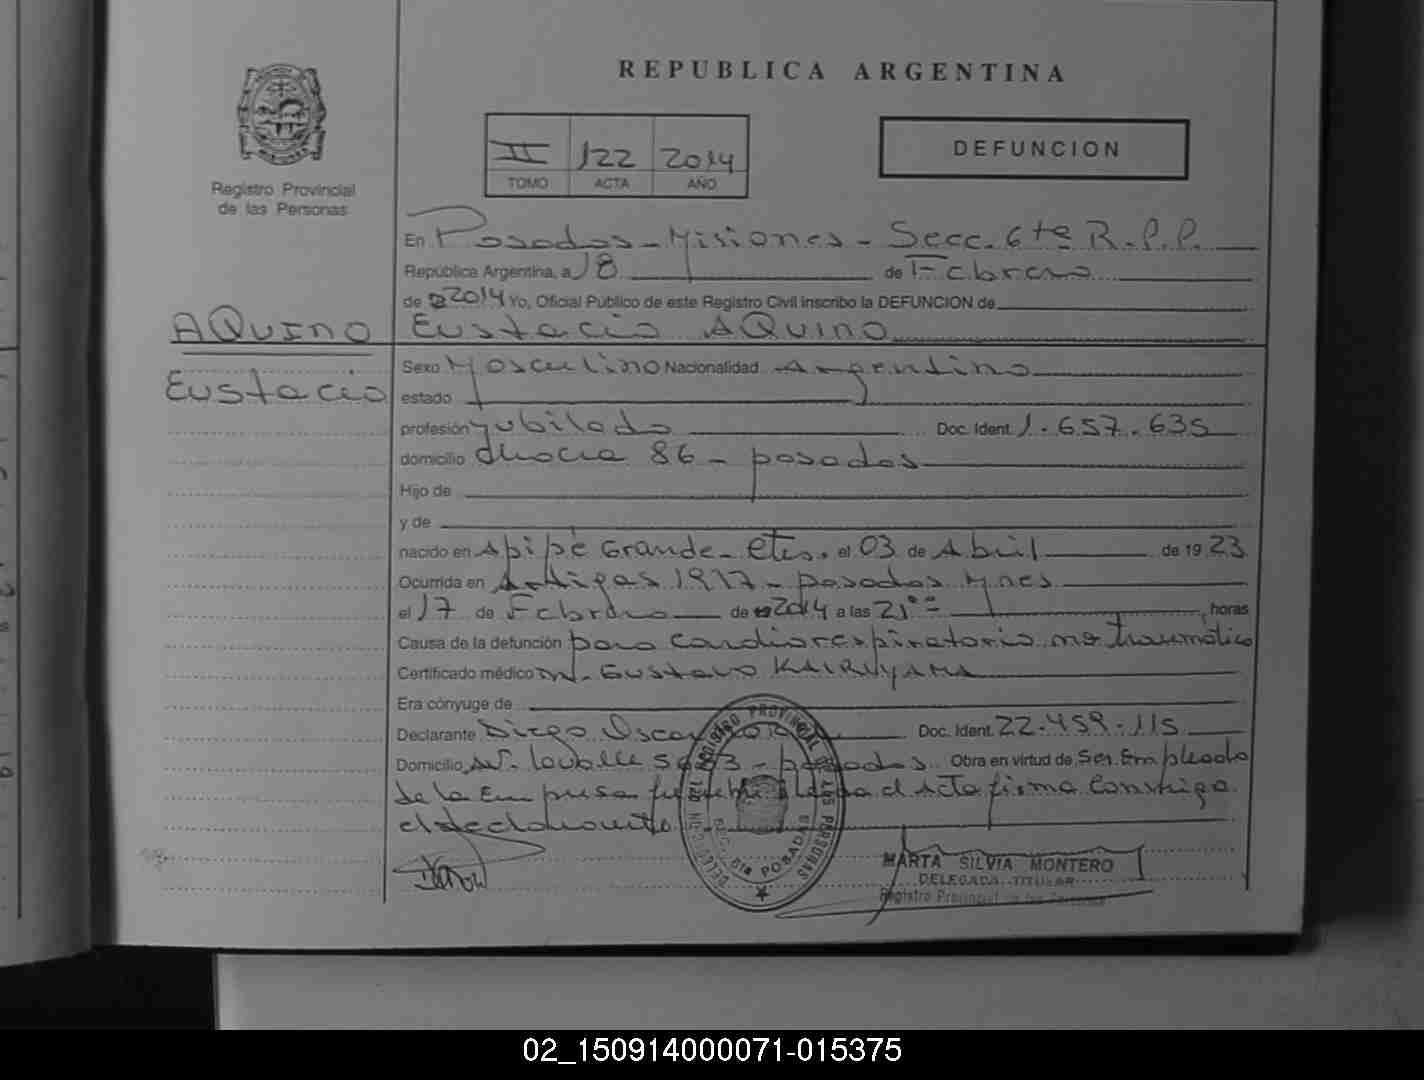 REPUBLICA ARGENTINA
Registro Provincial
de las Personas
II 122 2014
TOMO ACTA AÑO
DEFUNCION
En Posadas - Misiones - Secc. 6ta R.P.P.
República Argentina, a 18 de Febrero
de 2014 Yo, Oficial Público de este Registro Civil inscribo la DEFUNCION de
AQUINO Eustacio AQUINO
Eustacio
Sexo Masculino Nacionalidad Argentino
estado
profesión jubilado Doc. Ident. 1.657.635
domicilio 86 - posadas
Hijo de
y de
nacido en Apipé Grande - Ctes. el 03 de Abril de 1923
Ocurrida en Artigas 1917 - posadas Mnes
el 17 de Febrero de 2014 a las 21 horas
Causa de la defunción paro cardiorespiratorio no traumático
Certificado médico Dr. Gustavo
Era cónyuge de
Declarante Diego Oscar Doc. Ident. 22.459.115
Domicilio Av. lavalle - posadas Obra en virtud de Ser Empleado
de la Empresa el Acta firma Conmigo
el declarante
MARTA SILVIA MONTERO
DELEGADA TITULAR
Registro Provincial de las Personas
REGISTRO PROVINCIAL DE LAS PERSONAS
SEC. 6ta POSADAS
02_150914000071-015375